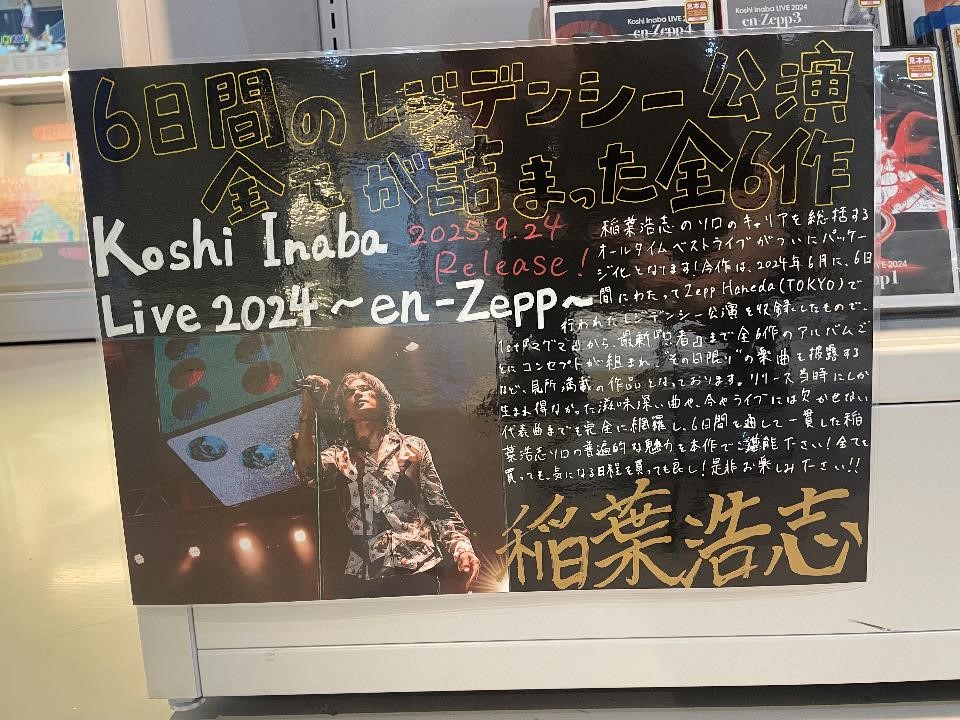 Koshi Inaba LIVE 2024
en-Zepp4
Koshi Inaba LIVE 2024
en-Zepp3
見本品
見本品
見本品
6日間のレジデンシー公演
全てが詰まった全6作
Koshi Inaba
2025.9.24
Release!
Live 2024～en-Zepp～
稲葉浩志のソロのキャリアを総括する
オールタイムベストライブがついにパッケー
ジ化となります!今作は、2024年6月に、6日
間にわたってZepp Haneda(TOKYO)で
行われたレジデンシー公演を収録したもので、
1st『マグマ』から、最新『只者』まで全6作のアルバムご
とにコンセプトが組まれ、"その日限り"の楽曲を披露する
など、見所満載の作品となっております。リリース当時にしか
生まれ得なかった滋味深い曲や、今やライブには欠かせない
代表曲までを完全に網羅し、6日間を通して一貫した稲
葉浩志ソロの普遍的な魅力を本作でご堪能下さい!全てを
買っても、気になる日程を買っても良し!是非お楽しみ下さい!!
稲葉浩志